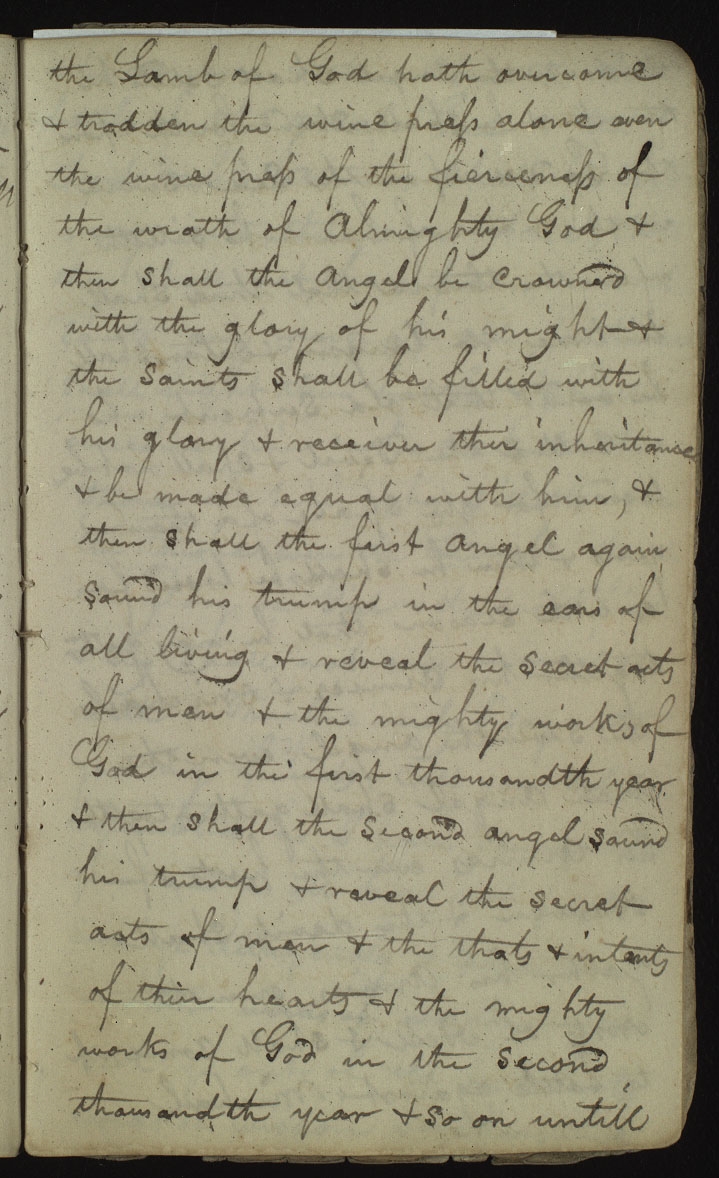 the Lamb of God hath overcome
& trodden the wine press alone even
the wine press of the fierceness of
the wrath of Almighty God &
then shall the Angel be crowned
with the glory of his might &
the Saints shall be filled with
his glory & receiver thir inheritance
& be made equal with him, &
then shall the first Angel again
sound his trump in the ears of
all living & reveal the Secret acts
of men & the mighty works of
God in the first thousandth year
& then shall the second angel sound
his trump & reveal the secret
acts of men & the thots & intents
of thier hearts & the mighty
works of God in the second
thousandth year & so on untill